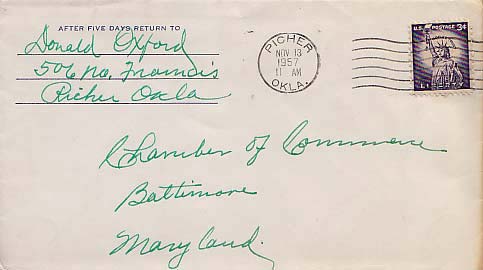 AFTER FIVE DAYS RETURN TO
Donald Oxford
506 No. Francis
Picher Okla
PICHER
NOV 13
1957
11 AM
OKLA.
U.S. POSTAGE 3¢
Chamber of Commerce
Baltimore
Maryland.